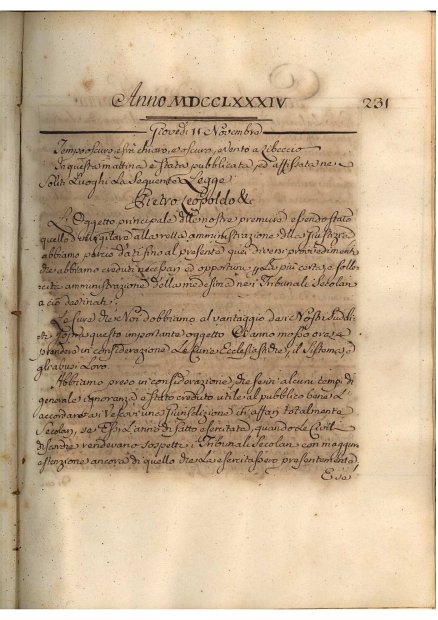 Anno MDCCLXXXIV 231
Giovedì 11 Novembre
Tempo oscuro, e poi chiaro, e oscuro, e vento a Libeccio
In questa mattina è stata pubblicata, ed affissata ne
Soliti Luoghi La Seguente Legge
Pietro Leopoldo &c
L'Oggetto principale delle nostre premure essendo stato
quello d'invigilare alla retta amministrazione della Giustizia
abbiamo perciò dati fino al presente quei diversi provvedimenti
che abbiamo creduti necessari ed opportuni per la più certa, e solle
cita amministrazione della medesima nei Tribunali Secolari
a ciò destinati.
Le cure che Noi dobbiamo al vantaggio dei Nostri Suddi
ti questo importante oggetto Ci anno mosso ora a
prendere in considerazione Le Curie Ecclesiastiche, il Sistema, e
gli abusi Loro.
Abbiamo preso in considerazione, che se in alcuni tempi di
generale ignoranza è stato creduto utile al pubblico bene L'
accordare ai Vescovi una Giurisdizione in affari totalmente
Secolari, se Essi L'anno di fatto esercitata, quando Le Civili
discordie rendevano sospetti i Tribunali Secolari con maggior
estenzione ancora di quello che La esercitassero presentemente,